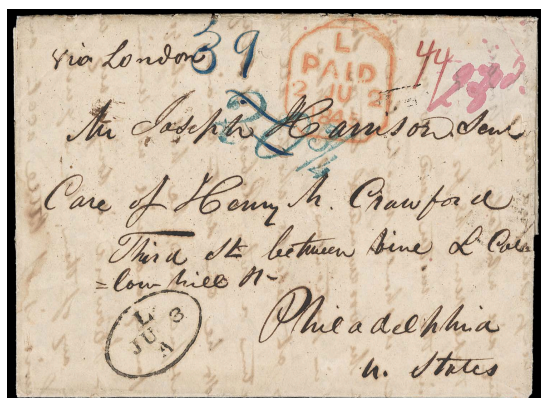 via London 39
L
PAID
2 JU 2
44
Mr Joseph Harrison Senr
Care of Henry M. Crawford
Third St. between vine & Cal
=low hill St-
L
JU 3
A
Philadelphia
u. States